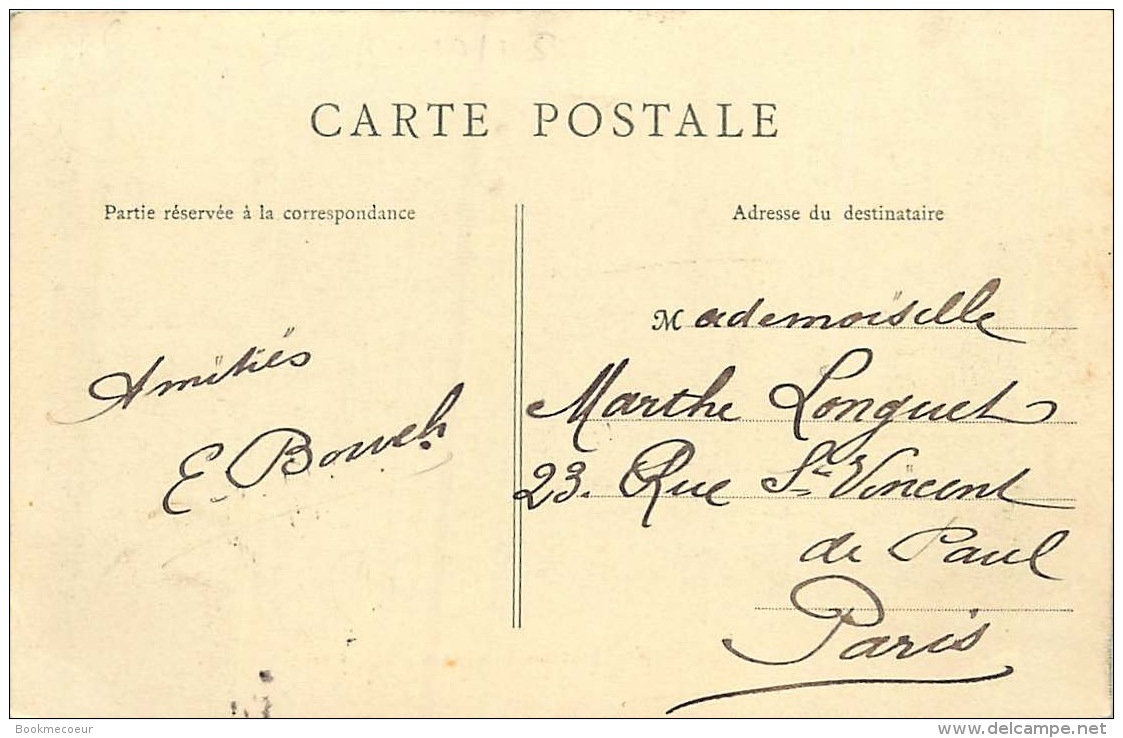 CARTE POSTALE
Partie réservée à la correspondance
Amitiés
E.
Adresse du destinataire
Mademoiselle
Marthe Longuet
23. Rue St Vincent
de Paul
Paris
Bookmecoeur
www.delcampe.net